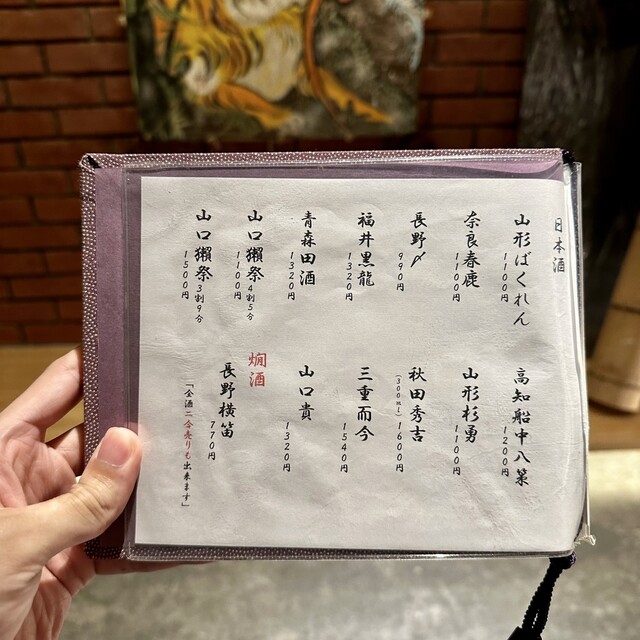 日本酒
山形ばくれん
1100円
奈良春鹿
1100円
長野〆
990円
福井黒龍
1320円
青森田酒
1320円
山口獺祭4割5分
1100円
山口獺祭3割9分
1500円
高知船中八策
1200円
山形杉勇
1100円
秋田秀吉
(300ml)1600円
三重而今
1540円
山口貴
1320円
燗酒
長野横笛
770円
「全酒二合売りも出来ます」